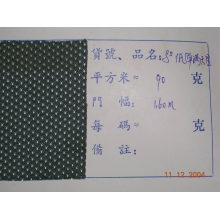 貨號、品名:
平方米= 90 克
門 幅: 160m
每 碼= 克
備 註:
11 12 2004